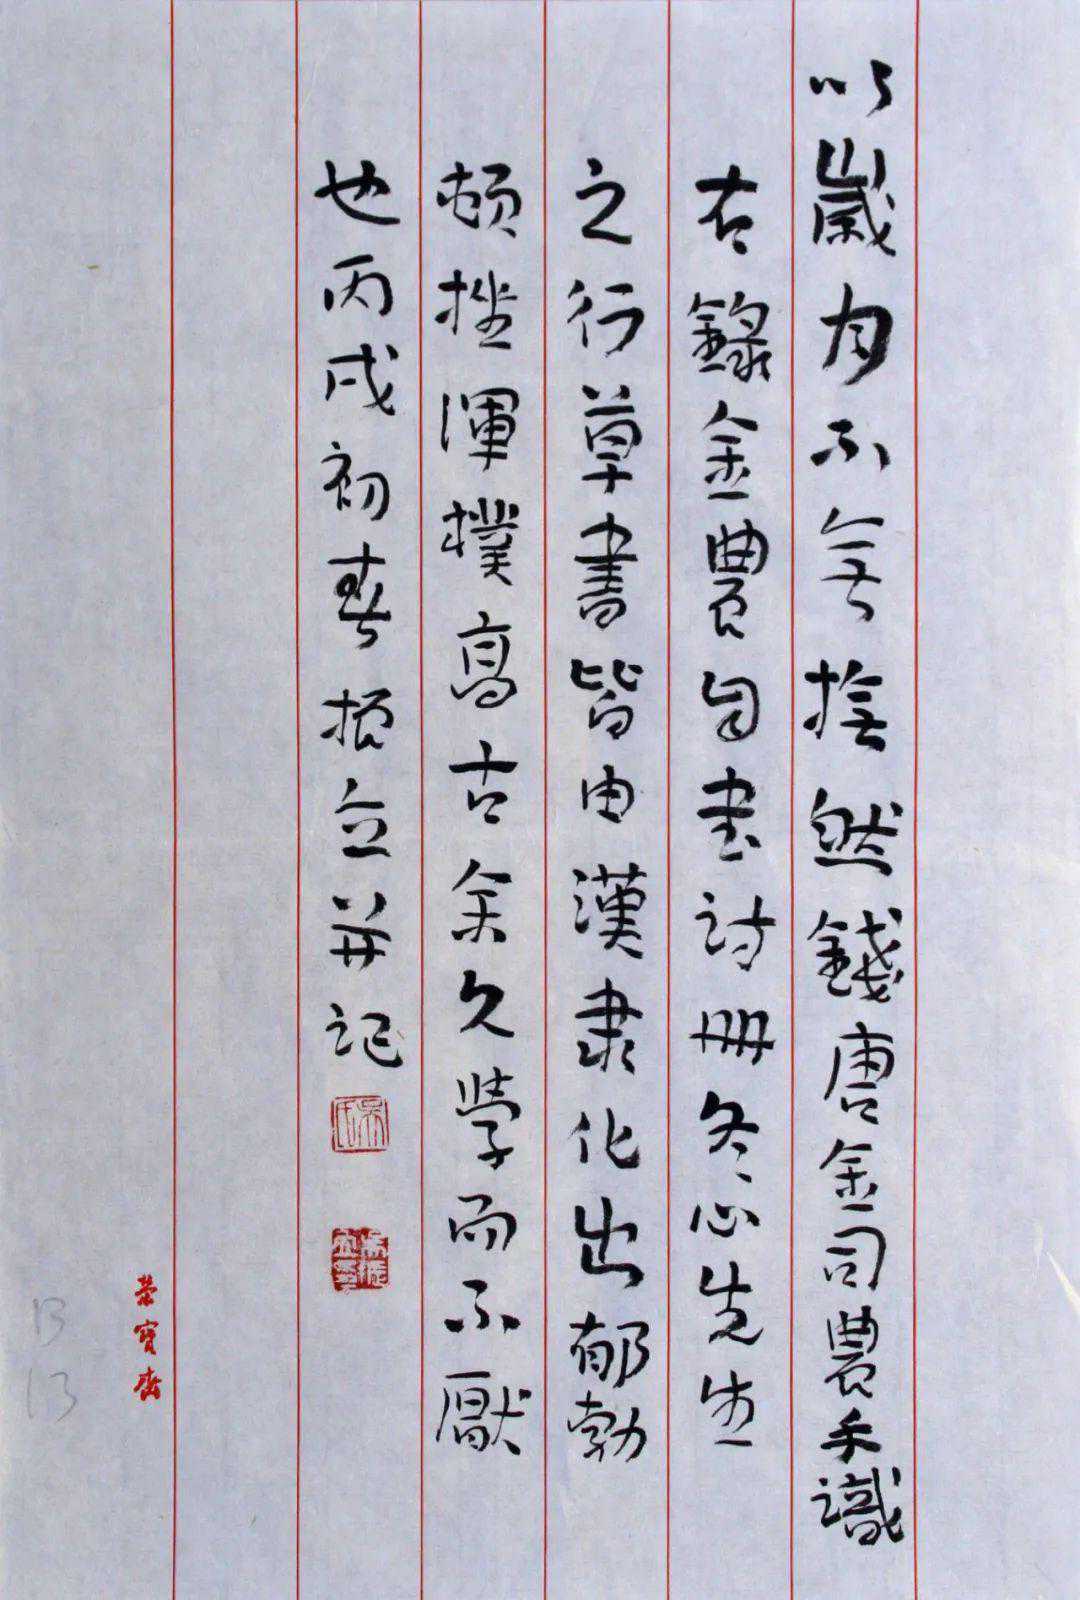 以歲月不旡捨然錢唐金司農手識
右錄金農自書詩冊冬心先生
之行草書皆由漢隸化出郁勃
頓挫渾樸高古余久學而不厭
也丙戌初春振立并記
榮寶齋
13
13